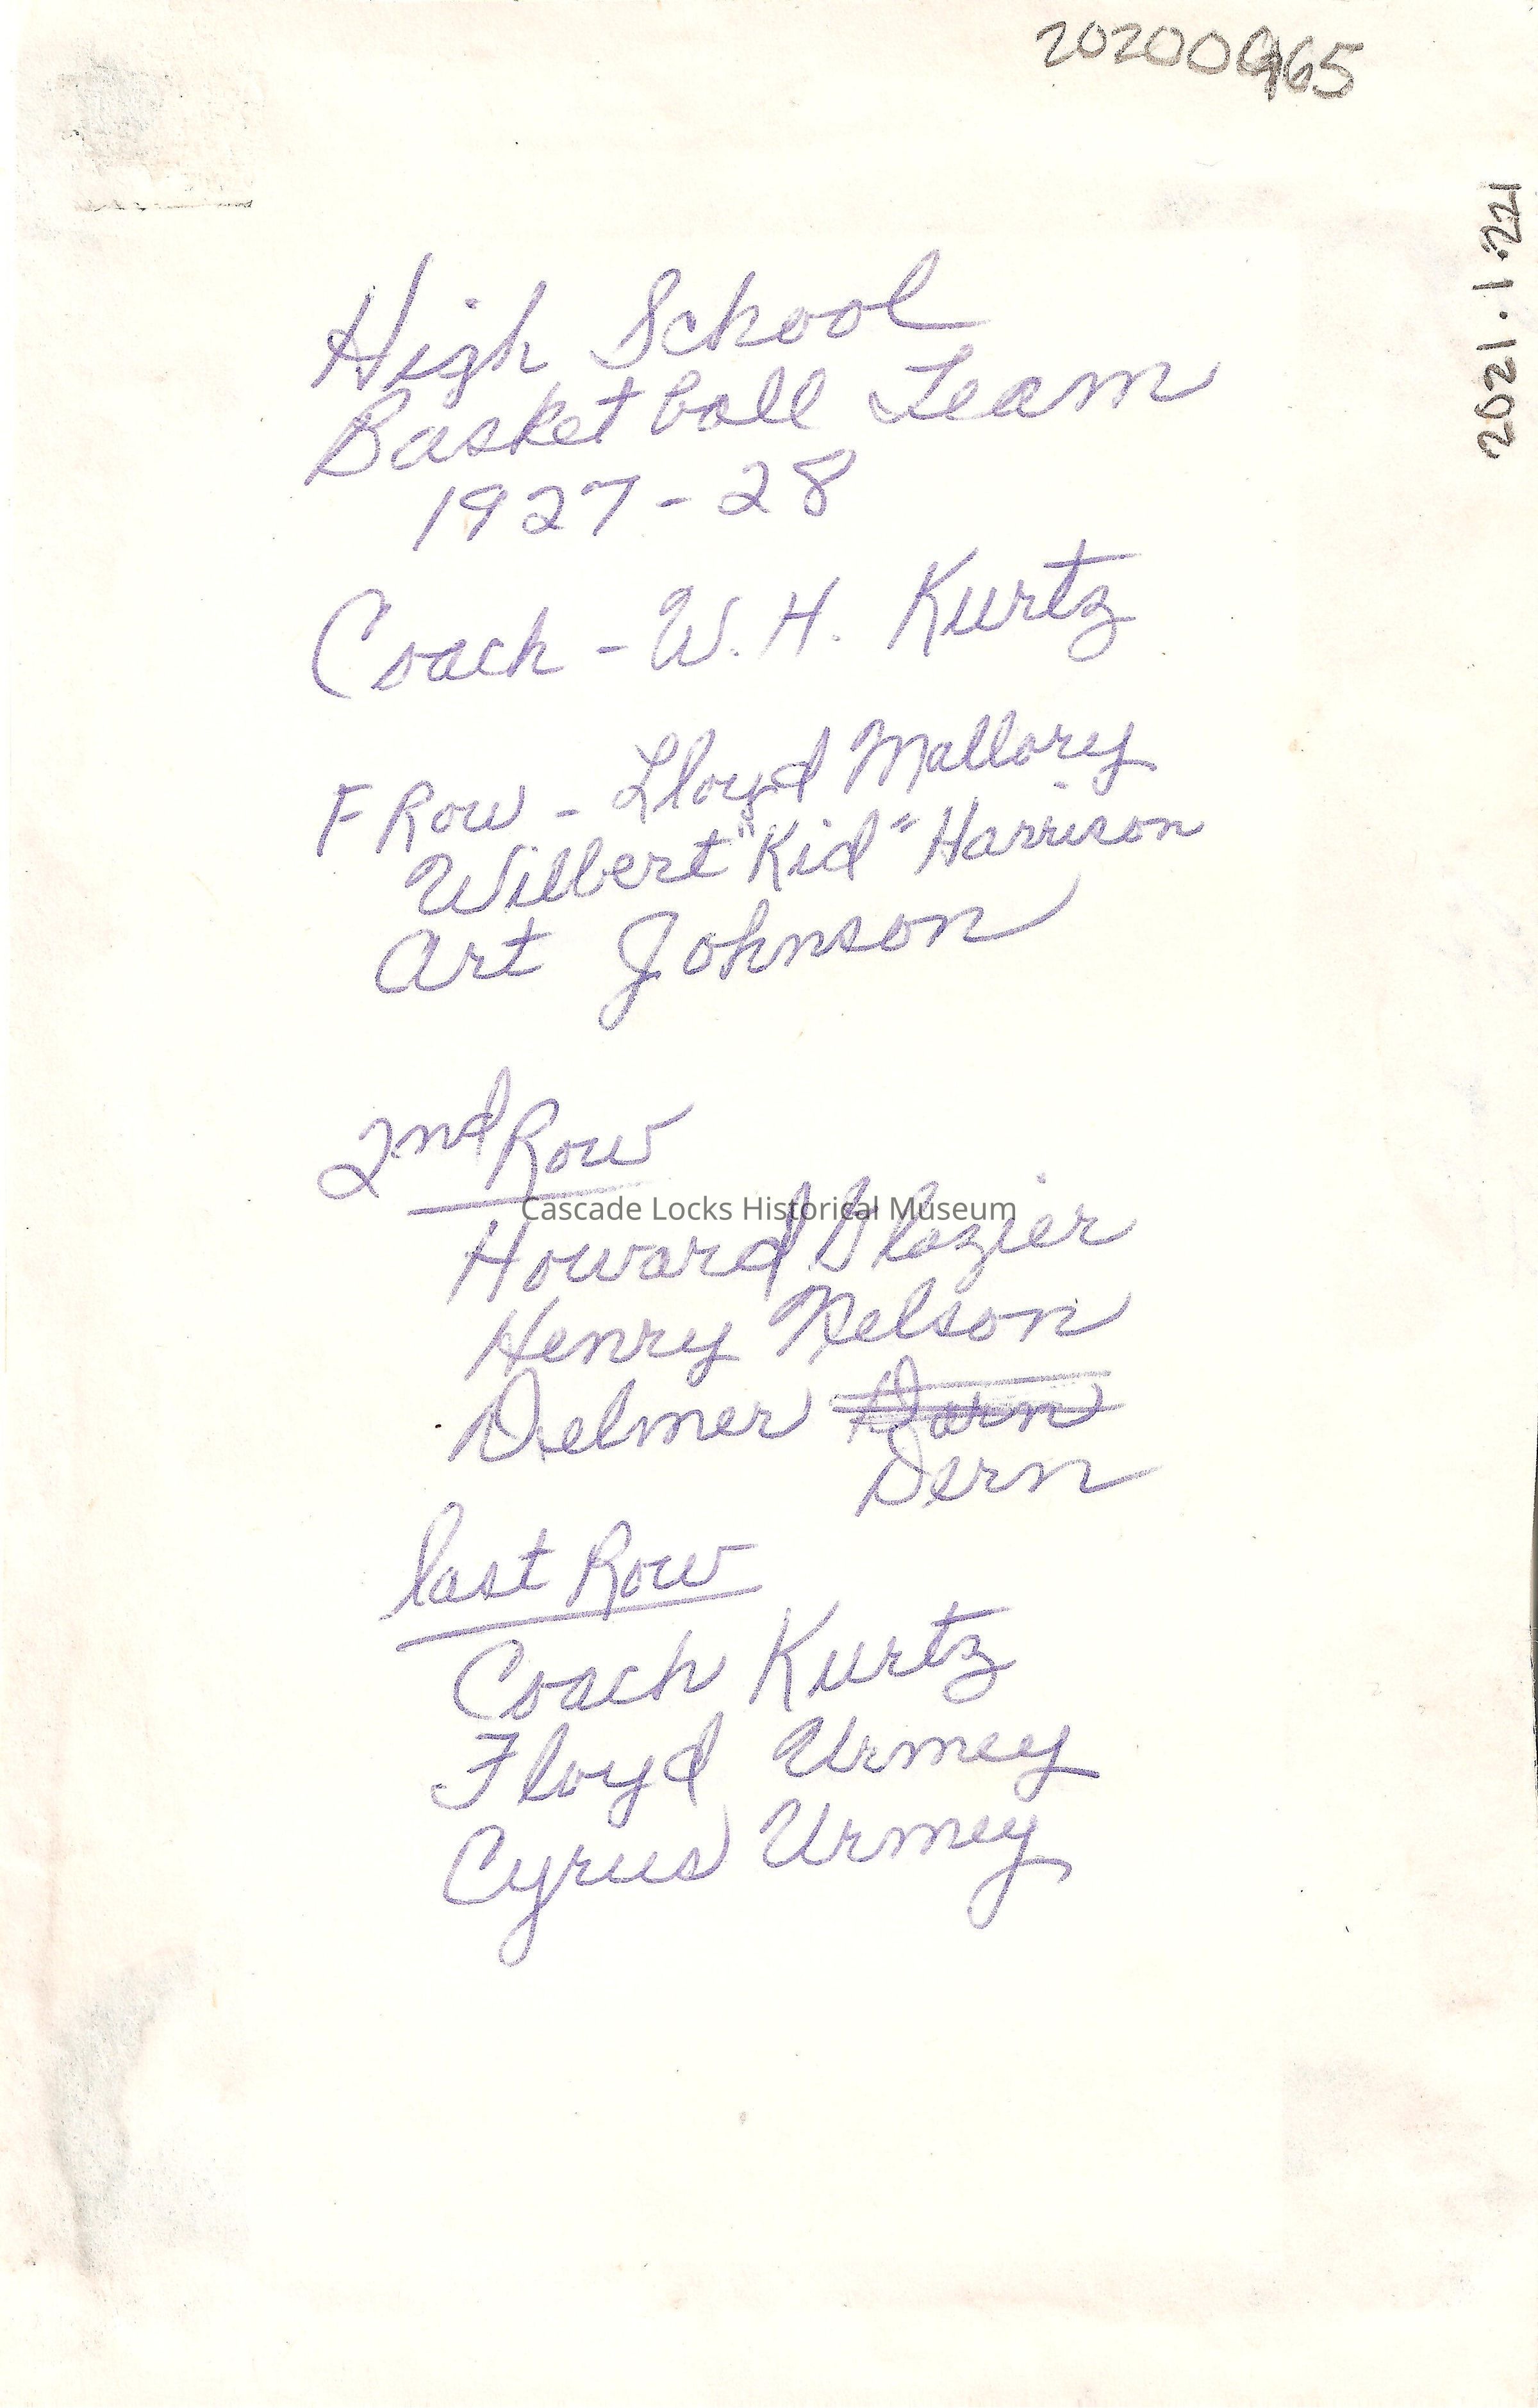 20200965
2021.1.221
High School
Basketball Team
1927-28
Coach - W. H. Kurtz
F Row - Lloyd Mallory
Wilbert "Kid" Harrison
Art Johnson
2nd Row
Cascade Locks Historical Museum
Howard Glazier
Henry Nelson
Delmer Dorn
Dern
last Row
Coach Kurtz
Floyd Urmey
Cyrus Urmey